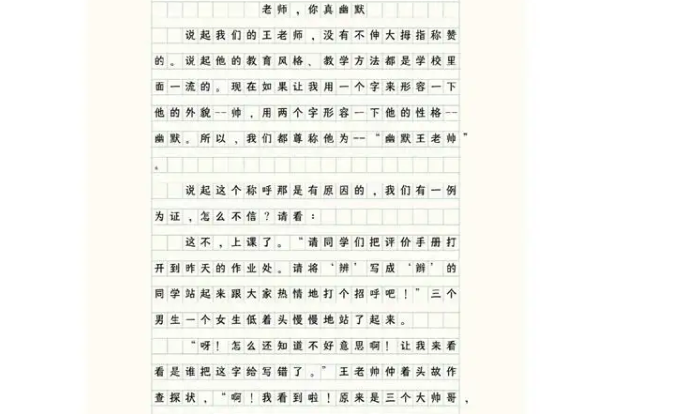 老师，你真幽默
说起我们的王老师，没有不伸大拇指称赞
的。说起他的教育风格、教学方法都是学校里
面一流的。现在如果让我用一个字来形容一下
他的外貌--帅，用两个字形容一下他的性格--
幽默。所以，我们都尊称他为--“幽默王老帅”
。
说起这个称呼那是有原因的，我们有一例
为证，怎么不信？请看：
这不，上课了。“请同学们把评价手册打
开到昨天的作业处。请将‘辨’写成‘辦’的
同学站起来跟大家热情地打个招呼吧！”三个
男生一个女生低着头慢慢地站了起来。
“呀！怎么还知道不好意思啊！让我来看
看是谁把这字给写错了。”王老帅伸着头故作
查探状，“啊！我看到啦！原来是三个大帅哥，